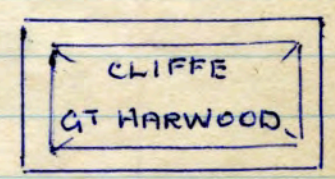 CLIFFE
GT HARWOOD